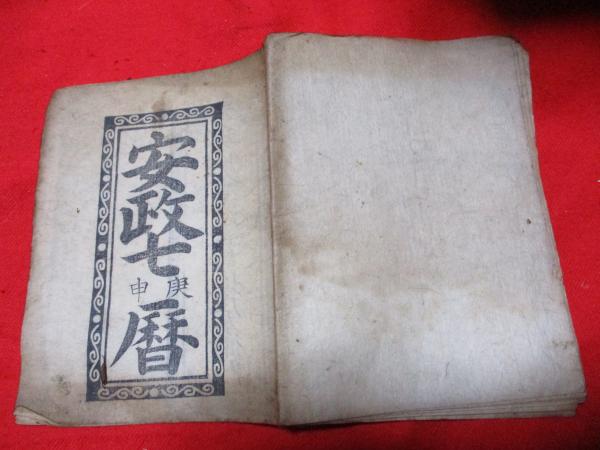 安政七
庚申
暦